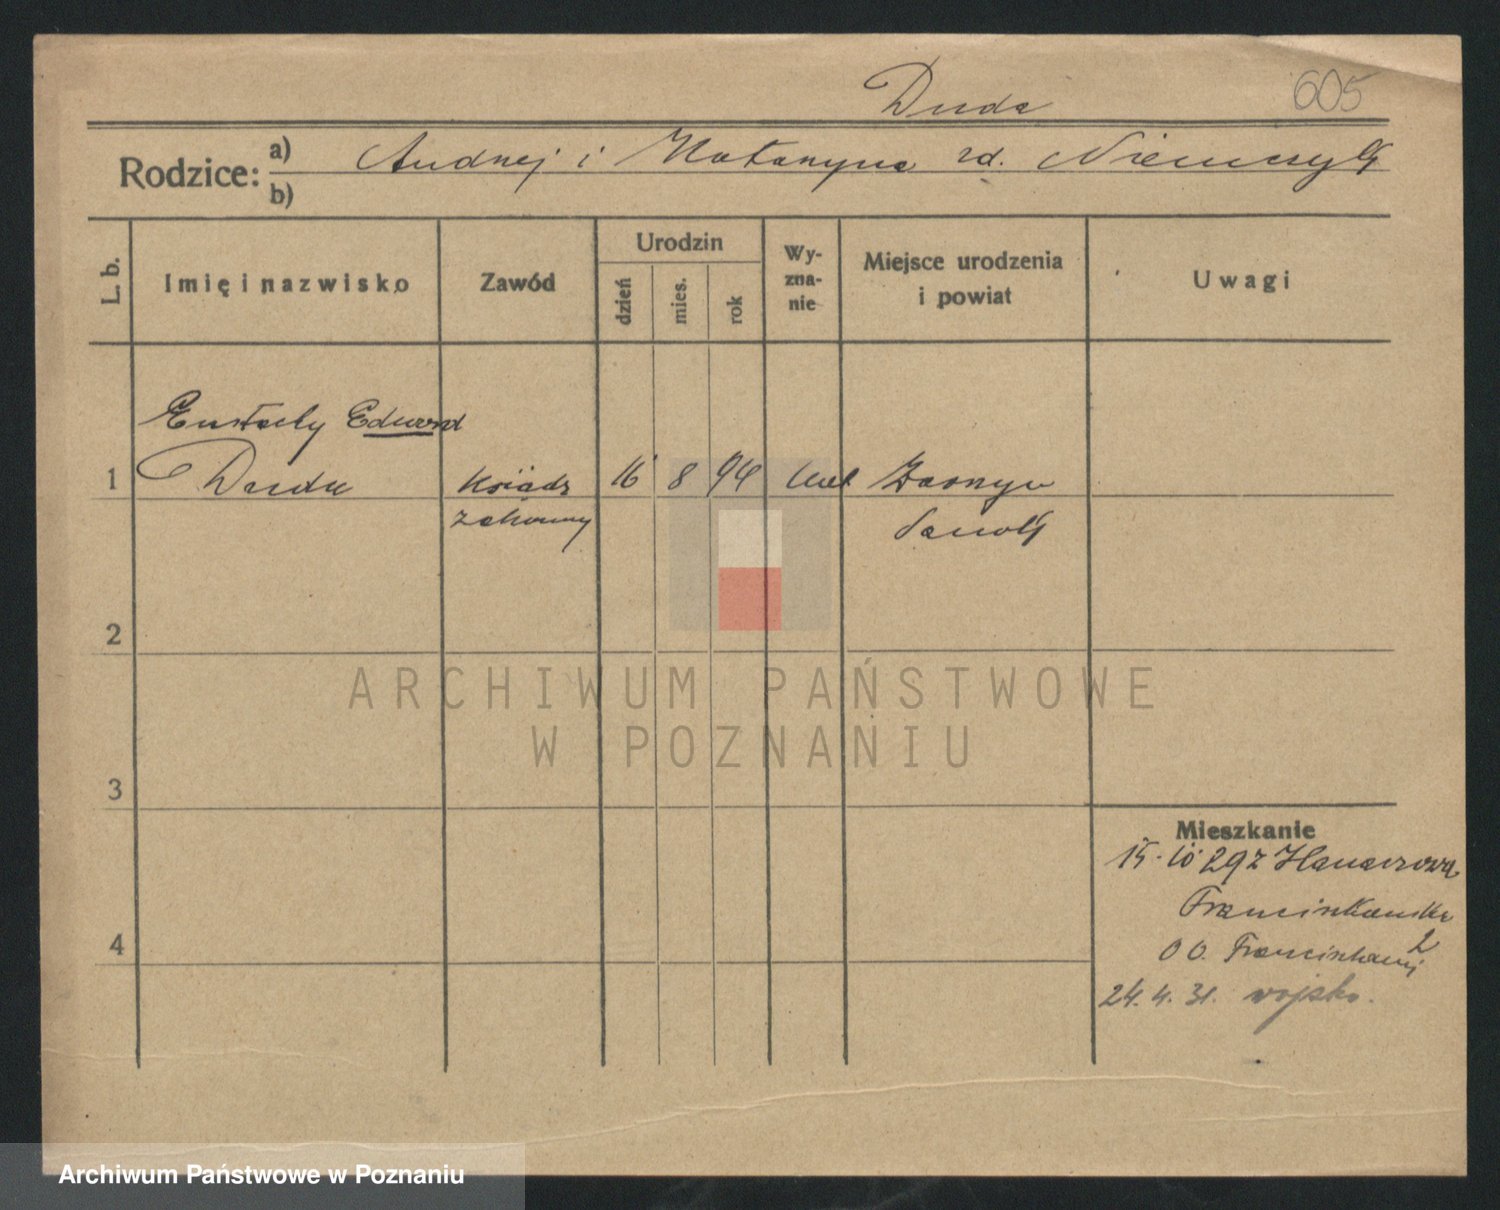 Duda
605
Rodzice: a) Andrzej i Katarzyna rd. Niemczyk
b)
L. b.
Imię i nazwisko
Zawód
Urodzin
dzień
mies.
rok
Wy-
zna-
nie
Miejsce urodzenia
i powiat
Uwagi
Eustachy Edward
1 Duda ksiądz 16 8 94 kat
zakonny Sanok
2
3
4
Mieszkanie
15. 10 29 z
Franciszkańska
2
OO. Franciszkanij
24. 4. 31. wojsko.
ARCHIWUM PAŃSTWOWE
W POZNANIU
Archiwum Państwowe w Poznaniu